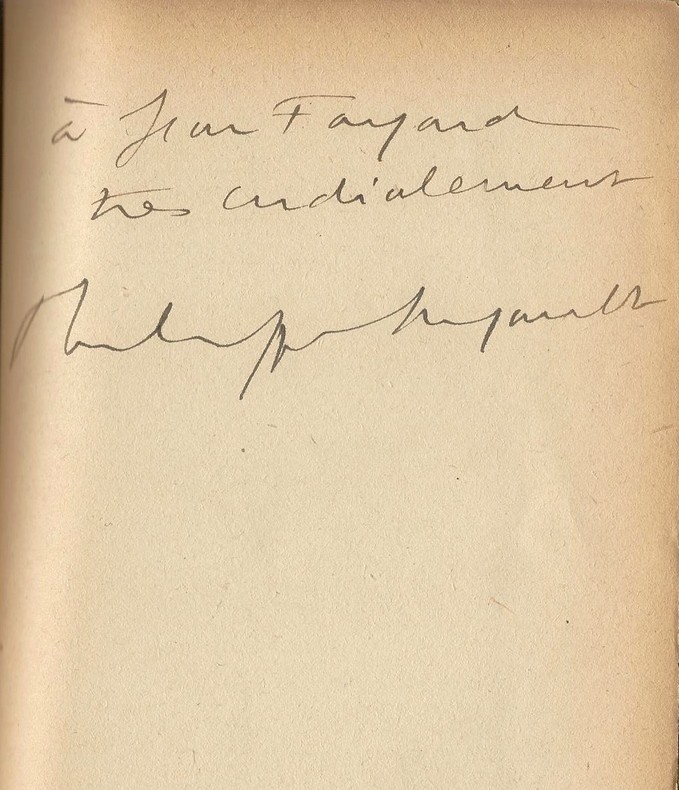 à Jean Fayard
très cordialement
Philippe